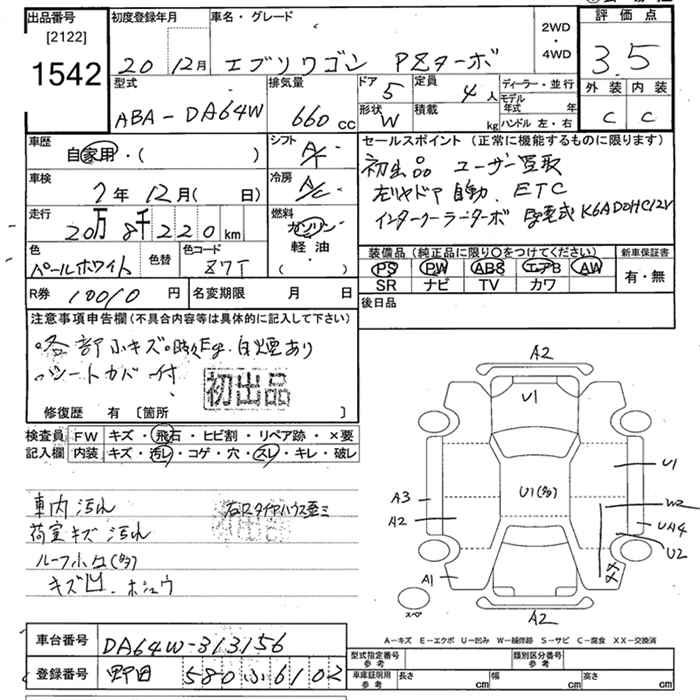 出品番号
[2122]
1542
初度登録年月
20 12月
車名・グレード
エブリワゴン PZターボ
2WD
・
4WD
評価点
3.5
外装 内装
C C
型式
ABA-DA64W
排気量
660 CC
ドア
5
定員
4人
形状
W
積載
kg
ディーラー・並行
モデル年式 年
ハンドル 左・右
車歴
自家用・( )
シフト
A/T
車検
7年12月( 日)
冷房
A/C
走行
20万8千220km
燃料
ガソリン
軽油・
( )
色
パールホワイト
色替
色コード
Z7T
R券 10010円
名変期限 月 日
セールスポイント(正常に機能するものに限ります)
初出品 ユーザー買取
左リヤドア自動、ETC
インタークーラーターボ K6ADOHC12V
装備品(純正品に限り○をつけてください)
PS PW ABS エアB AW
SR ナビ TV カワ
新車保証書
有・無
後日品
注意事項申告欄(不具合内容等は具体的に記入して下さい)
・各部小キズ・時々Eg.白煙あり
・シートカバー付
初出品
修復歴 有 [箇所 ]
検査員記入欄
FW キズ・飛石・ヒビ割・リペア跡・×要
内装 キズ・汚レ・コゲ・穴・スレ・キレ・破レ
車内汚れ
荷室キズ 汚れ
ルーフ小凹(多)
キズ凹、ホシュウ
A2
U1
U1(多)
U1
A3
A2
W2
UA4
U2
A1
XX
スペ
A2
A-キズ E-エクボ U-凹み W-補修跡 S-サビ C-腐食 XX-交換済
車台番号 DA64W-313156
登録番号 野田 580 ふ 6102
型式指定番号 参考
類別区分番号 参考
車庫証明用 参考 長さ cm 幅 cm 高さ cm